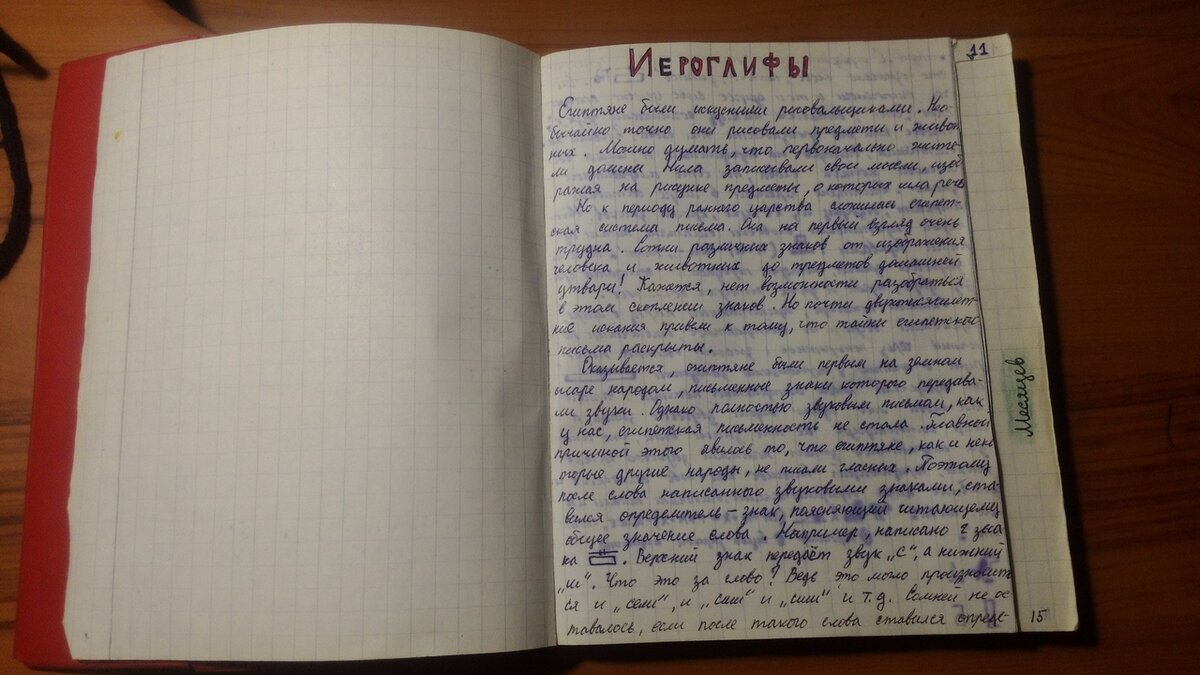 11
ИЕРОГЛИФЫ
Египтяне были искусными рисовальщиками. Нео-
бычайно точно они рисовали предметы и живот
ных. Можно думать, что первоначально жите-
ли долины Нила записывали свои мысли, изоб
ражая на рисунке предметы, о которых шла речь
Но к периоду раннего царства сложилась египет-
ская система письма. Она на первый взгляд очень
трудна. Сотни различных знаков от изображения
человека и животных до предметов домашней
утвари! Кажется, нет возможности разобраться
в этом скоплении знаков. Но почти двухтысячелет-
ние искания привели к тому, что тайны египетского
письма раскрыты.
Оказывается, египтяне были первым на земном
шаре народом, письменные знаки которого передава-
ли звуки. Однако полностью звуковым письмом, как
у нас, египетская письменность не стала. Главной
причиной этого явилось то, что египтяне, как и нек
оторые другие народы, не писали гласных. Поэтому
после слова написанного звуковыми знаками, ста-
вился определитель – знак, поясняющий читающему
общее значение слова. Например, написано 2 зна
ка . Верхний знак передаёт звук „с“, а нижний
„ш“. Что это за слово? Ведь это могло произносит
ся и „сеш“, и „саш“ и „сиш“ и т.д. Сомнений не ос
тавалось, если после такого слова ставился опреде-
Месяцев
15